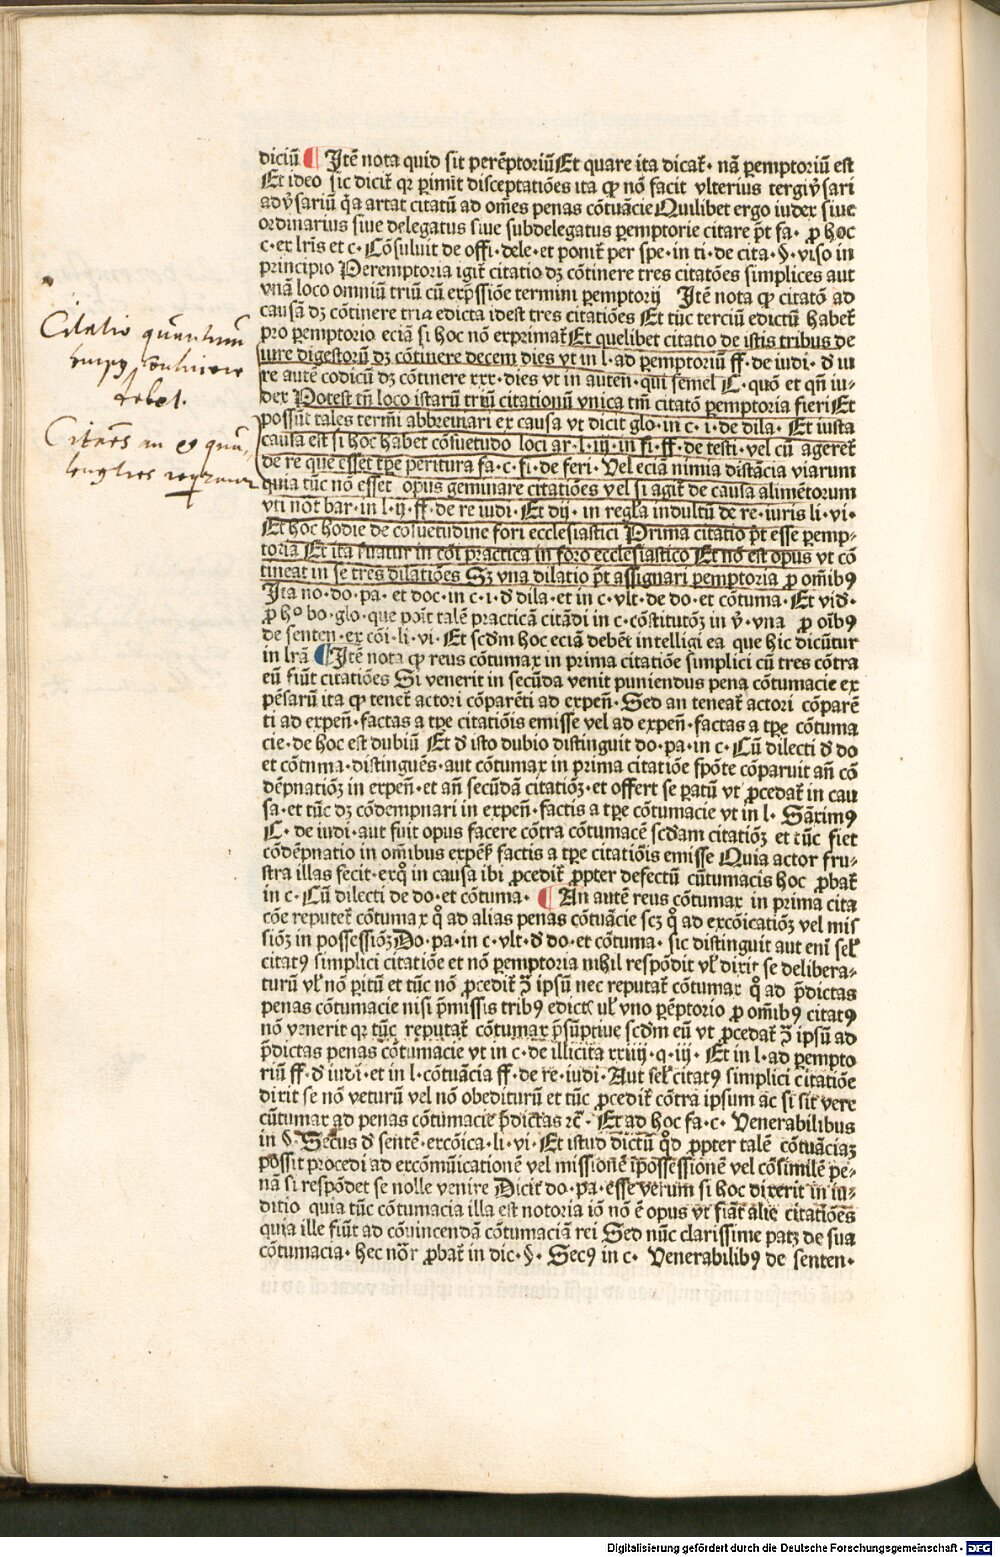 diciū ¶ Itē nota quid sit perēptoriū Et quare ita dicat᷑· nā ꝑemptoriū est
Et ideo sic dicit᷑ qꝛ ꝑimit disceptatiōes ita ꝙ nō facit vlterius tergiv̉sari
adv̉sariū q̇a artat citatū ad om̄es penas cōtuācie Quilibet ergo iudex siue
ordinarius siue delegatus siue subdelegatus ꝑemptorie citare pt̄ fa· ꝓ hoc
c·ex lr̄is et c· Cōsuluit de offi·dele·et ponit᷑ per spe·in ti·de cita·§·viso in
principio Peremptoria igit᷑ citatio dꝫ cōtinere tres citatōes simplices aut
vnā loco omniū triū cū exp̄ssiōe termini ꝑemptorij Itē nota ꝙ citatō ad
causā dꝫ cōtinere tria edicta idest tres citatiōes Et tūc terciū edictū habet᷑
pro ꝑemptorio eciā si hoc nō exprimat᷑ Et quelibet citatio de istis tribus de
iure digestorū dꝫ cōtinere decem dies vt in l·ad ꝑemptoriū ff·de iudi· đ iu
re autē codicū dꝫ cōtinere xxx·dies vt in auten·qui semel C·quō et qn̄ iu-
dex Potest tn̄ loco istarū triū citationū vnica tm̄ citatō ꝑemptoria fieri Et
possūt tales termī abbreuiari ex causa vt dicit glo·in c·i·de dila· Et iusta
causa est si hoc habet cōsuetudo loci ar·l·iij·in fi·ff·de testi·vel cū ageret᷑
de re que esset tp̄e peritura fa·c·fi·de feri· Vel eciā nimia distācia viarum
quia tūc nō esset opus geminare citatiōes vel si agit᷑ de causa alimētorum
vti not̄ bar·in l·ij·ff·de re iudi·Et dij·in regl̄a indultū de re·iuris li·vi·
Et hoc hodie de cōsuetudine fori ecclesiastici Prima citatio pt̄ esse ꝑemp-
toria Et ita ẜuatur in cōi practica in foro ecclesiastico Et nō est opus vt cō
tineat in se tres dilatiōes Sꝫ vna dilatio pt̄ assignari ꝑemptoria ꝓ om̄ibꝰ
Ita no·do·pa·et doc·in c·i·đ dila·et in c·vlt·de do·et cōtuma·Et vid̄·
ꝓ ho bo·glo·que poīt talē practicā citādi in c·cōstitutōꝫ in v̉·vna ꝓ oībꝰ
de senten·ex cōi·li·vi· Et scd̄m hoc eciā debēt intelligi ea que hic dicūtur
in lr̄a ¶ Itē nota ꝙ reus cōtumax in prima citatiōe simplici cū tres cōtra
eū fiūt citatiōes Si venerit in secūda venit puniendus pena cōtumacie ex
pēsarū ita ꝙ tenet᷑ actori cōparēti ad expeñ·Sed an teneat᷑ actori cōparē
ti ad expeñ·factas a tp̄e citatiōis emisse vel ad expeñ·factas a tp̄e cōtuma
cie·de hoc est dubiū Et đ isto dubio distinguit do·pa·in c·Cū dilecti đ do
et cōtuma·distinguēs·aut cōtumax in prima citatiōe spōte cōparuit añ cō
dēpnatiōꝫ in expeñ·et añ secūdā citatiōꝫ·et offert se ꝑatū vt ꝓcedat᷑ in cau
sa·et tūc dꝫ cōdempnari in expeñ·factis a tp̄e cōtumacie vt in l· Sāximꝰ
C·de iudi·aut fuit opus facere cōtra cōtumacē scd̄am citatiōꝫ et tūc fiet
cōdēpnatio in om̄ibus expēs factis a tp̄e citatiōis emisse Quia actor fru-
stra illas fecit·exq̊ in causa ibi ꝓcedit᷑ ꝓpter defectū cūtumacis hoc ꝓbat᷑
in c·Cū dilecti de do·et cōtuma· ¶ An autē reus cōtumax in prima cita
cōe reputet᷑ cōtumax q̊ ad alias penas cōtuācie scꝫ q̊ ad excōicatiōꝫ vel mis
siōꝫ in possessiōꝫ Do·pa·in c·vlt·đ do·et cōtuma· sic distinguit aut enī sel᷑
citatꝰ simplici citatiōe et nō ꝑemptoria nihil respōdit vl᷑ dixit se delibera-
turū vl᷑ nō ꝑitū et tūc nō ꝓcedit᷑ ꝯ̄ ipsū nec reputat᷑ cōtumax q̊ ad p̄dictas
penas cōtumacie nisi p̄missis tribꝰ edictꝭ ul᷑ vno ꝑēptorio ꝓ om̄ibꝰ citatꝰ
nō venerit qꝛ tūc reputat᷑ cōtumax p̄sūptiue scd̄m eū vt ꝓcedat᷑ ꝯ̄ ipsū ad
p̄dictas penas cōtumacie vt in c·de illicita xxiiij·q·iij· Et in l·ad ꝑempto
riū ff·đ iudi·et in l·cōtuācia ff·de re·iudi·Aut sel᷑ citatꝰ simplici citatiōe
dixit se nō veturū vel nō obediturū et tūc ꝓcedit᷑ cōtra ipsum ac si sit vere
cūtumax ad penas cōtumacie p̄dictas ꝛc̄· Et ad hoc fa·c· Venerabilibus
in §·Secus đ sentē·excōica·li·vi· Et istud dictū q̊d ꝓpter talē cōtuāciaꝫ
possit procedi ad excōmūicationē vel missionē ī possessionē vel cōsimilē pe-
nā si respōdet se nolle venire Dicit do·pa·esse verum si hoc dixerit in iu-
ditio quia tūc cōtumacia illa est notoria iō nō ē opus vt fiāt alie citatiōes
quia ille fiūt ad cōuincendā cōtumaciā rei Sed nūc clarissime patꝫ de sua
cōtumacia· hec no᷑r ꝓbat᷑ in dic·§· Secꝰ in c· Venerabilibꝰ de senten·
Citatio quantum
temporis continere
debet.
Digitalisierung gefördert durch die Deutsche Forschungsgemeinschaft - DFG